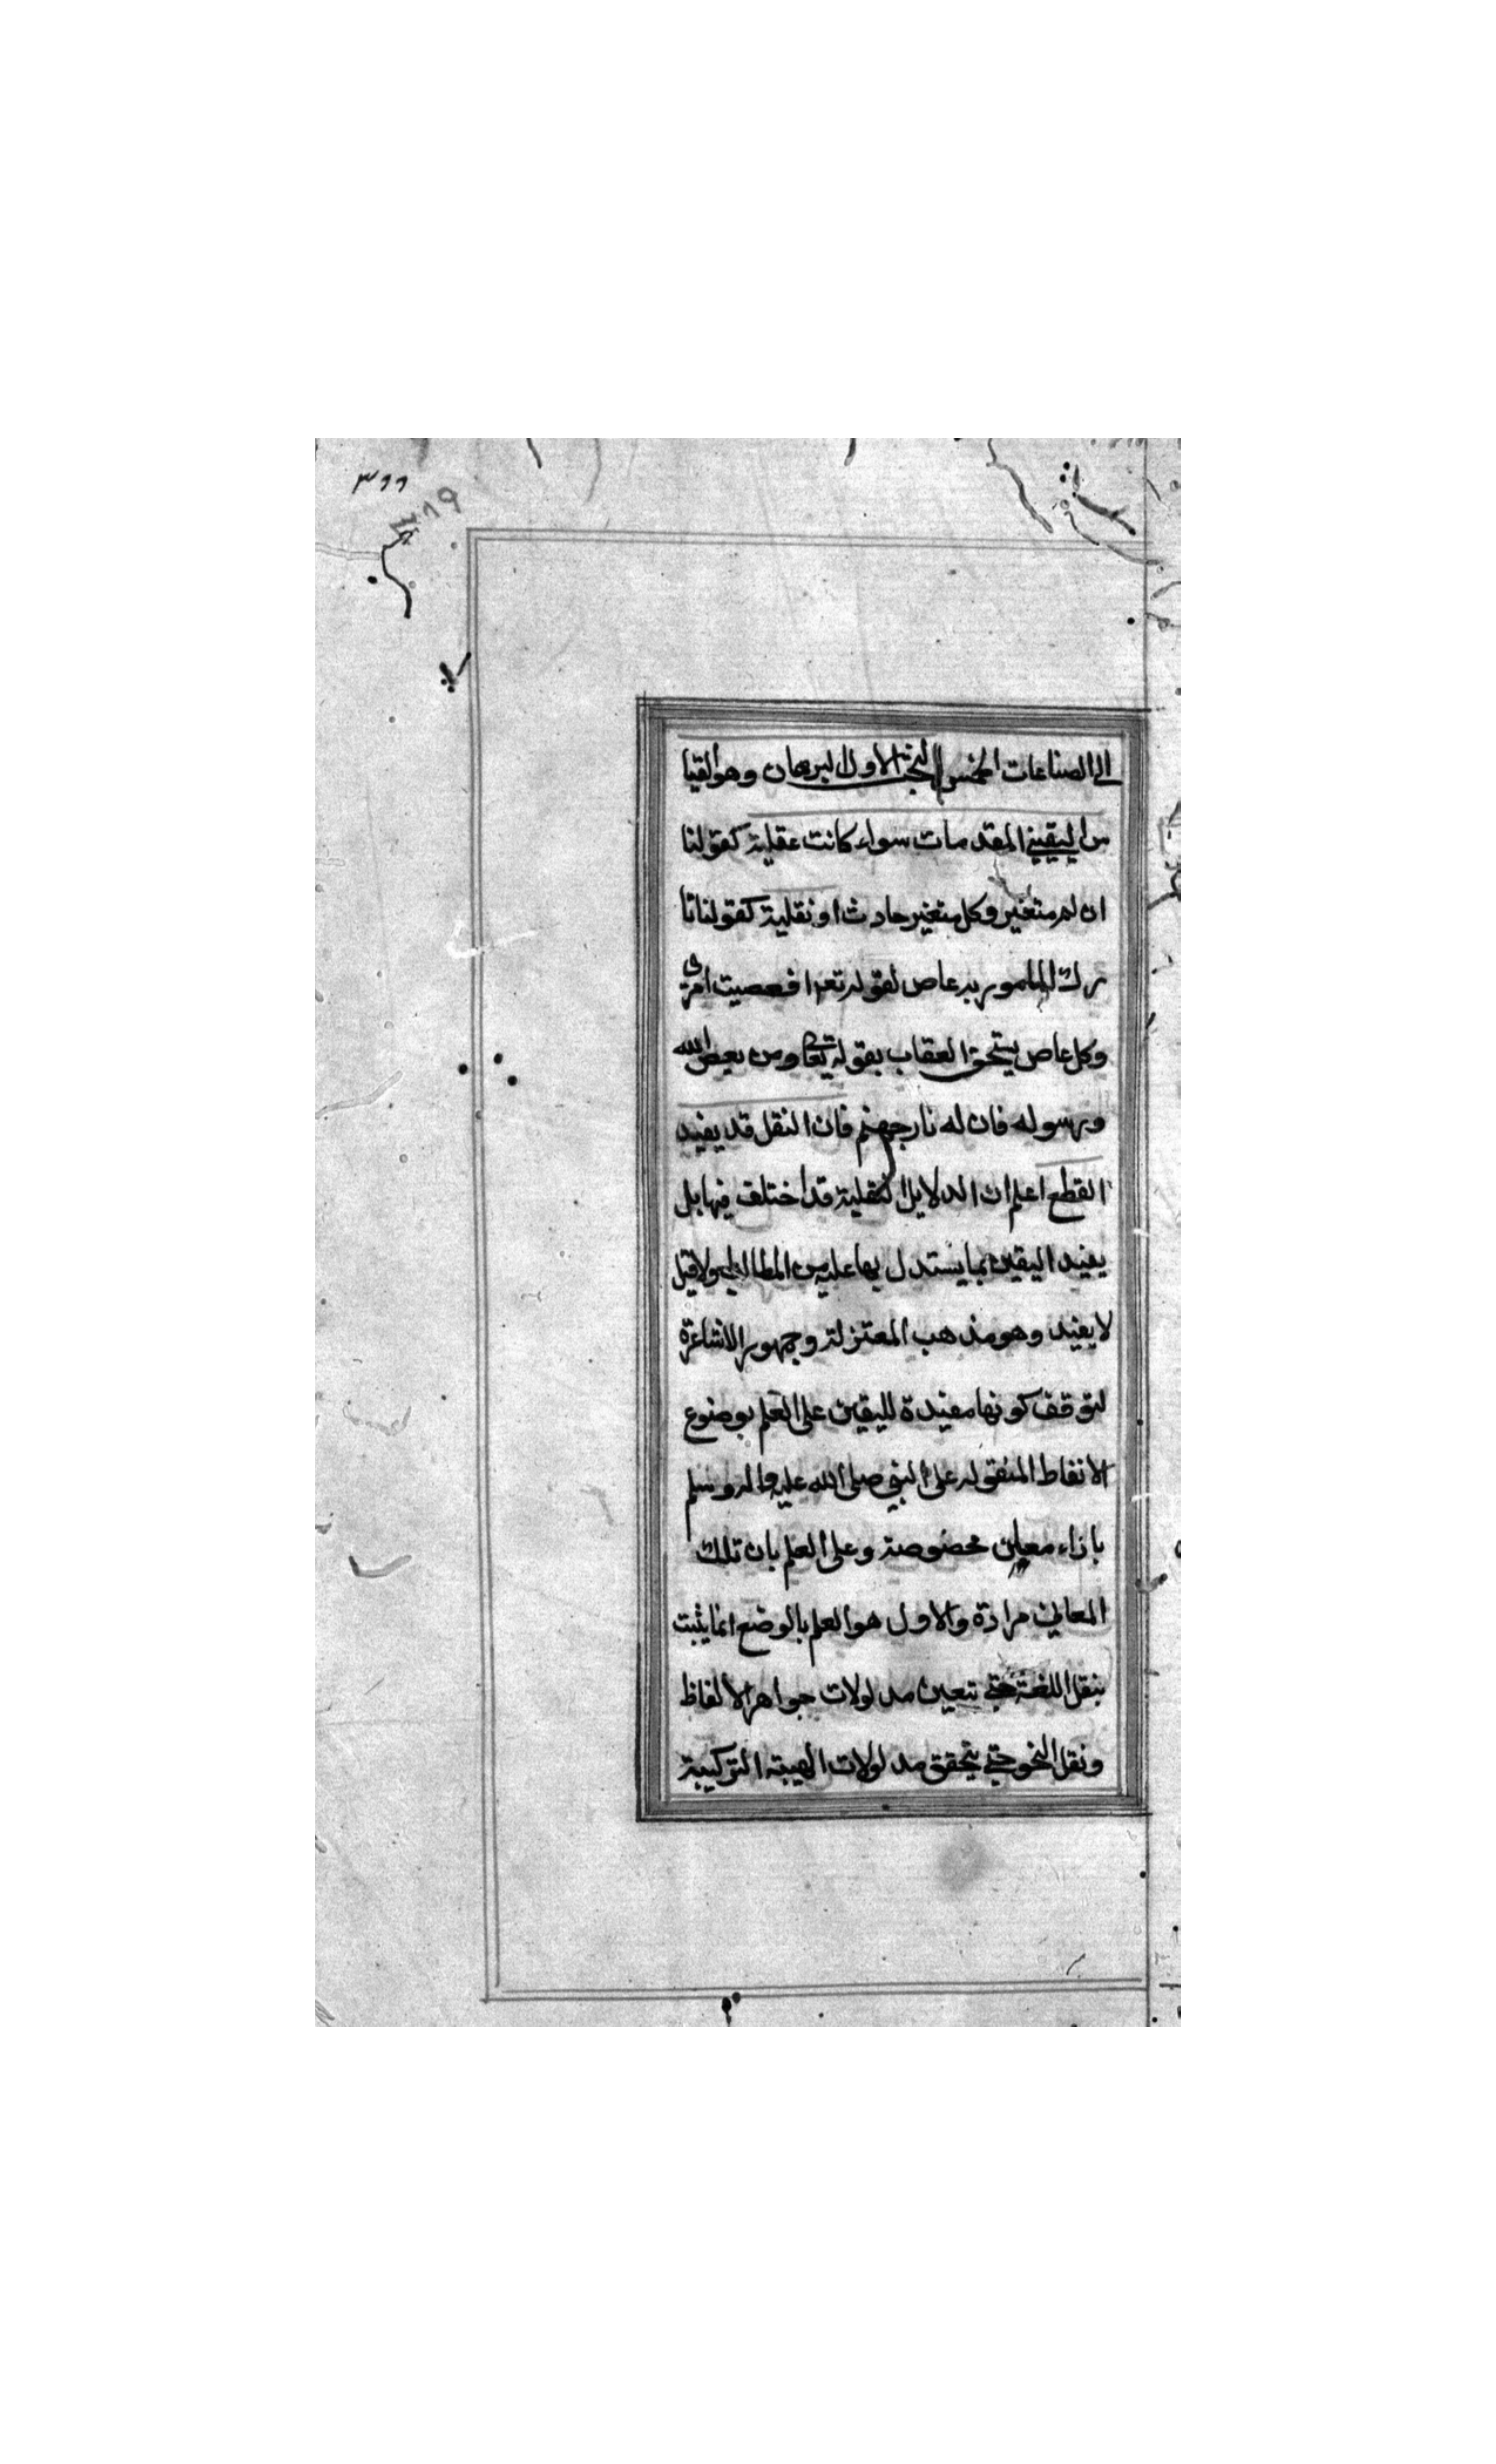 ٣٦٦
٣٦٩
الى الصناعات الخمس البحث الاول البرهان وهو القيا
من اليقيني المقدمات سواء كانت عقلية كقولنا
ان لم متغير وكل متغير حادث او نقلية كقولنا تا
رك المامور به عاص لقوله تعا افعصيت امرى
وكل عاص يستحق العقاب بقوله تعالى ومن يعص الله
ورسوله فان له نار جهنم فان النقل قد يفيد
القطع اعلم ان الدلايل النقلية قد اختلف فيها بل
يفيد اليقين بما يستدل بها عليه من المطالب اولا قيل
لا يفيد وهو مذهب المعتزلة وجمهور الاشاعرة
لتوقف كونها مفيدة لليقين على العلم بوضوع
الانفاط المنقوله على النبي صلى الله عليه واله وسلم
بازاء معان مخصوصة وعلى العلم بان تلك
المعاني مرادة والاول هو العلم بالوضع انما يثبت
بنقل اللغة حتى تتعين مدلولات جواهر الالفاظ
ونقل النحو حتى يتحقق مدلولات الهيبة التركيبة